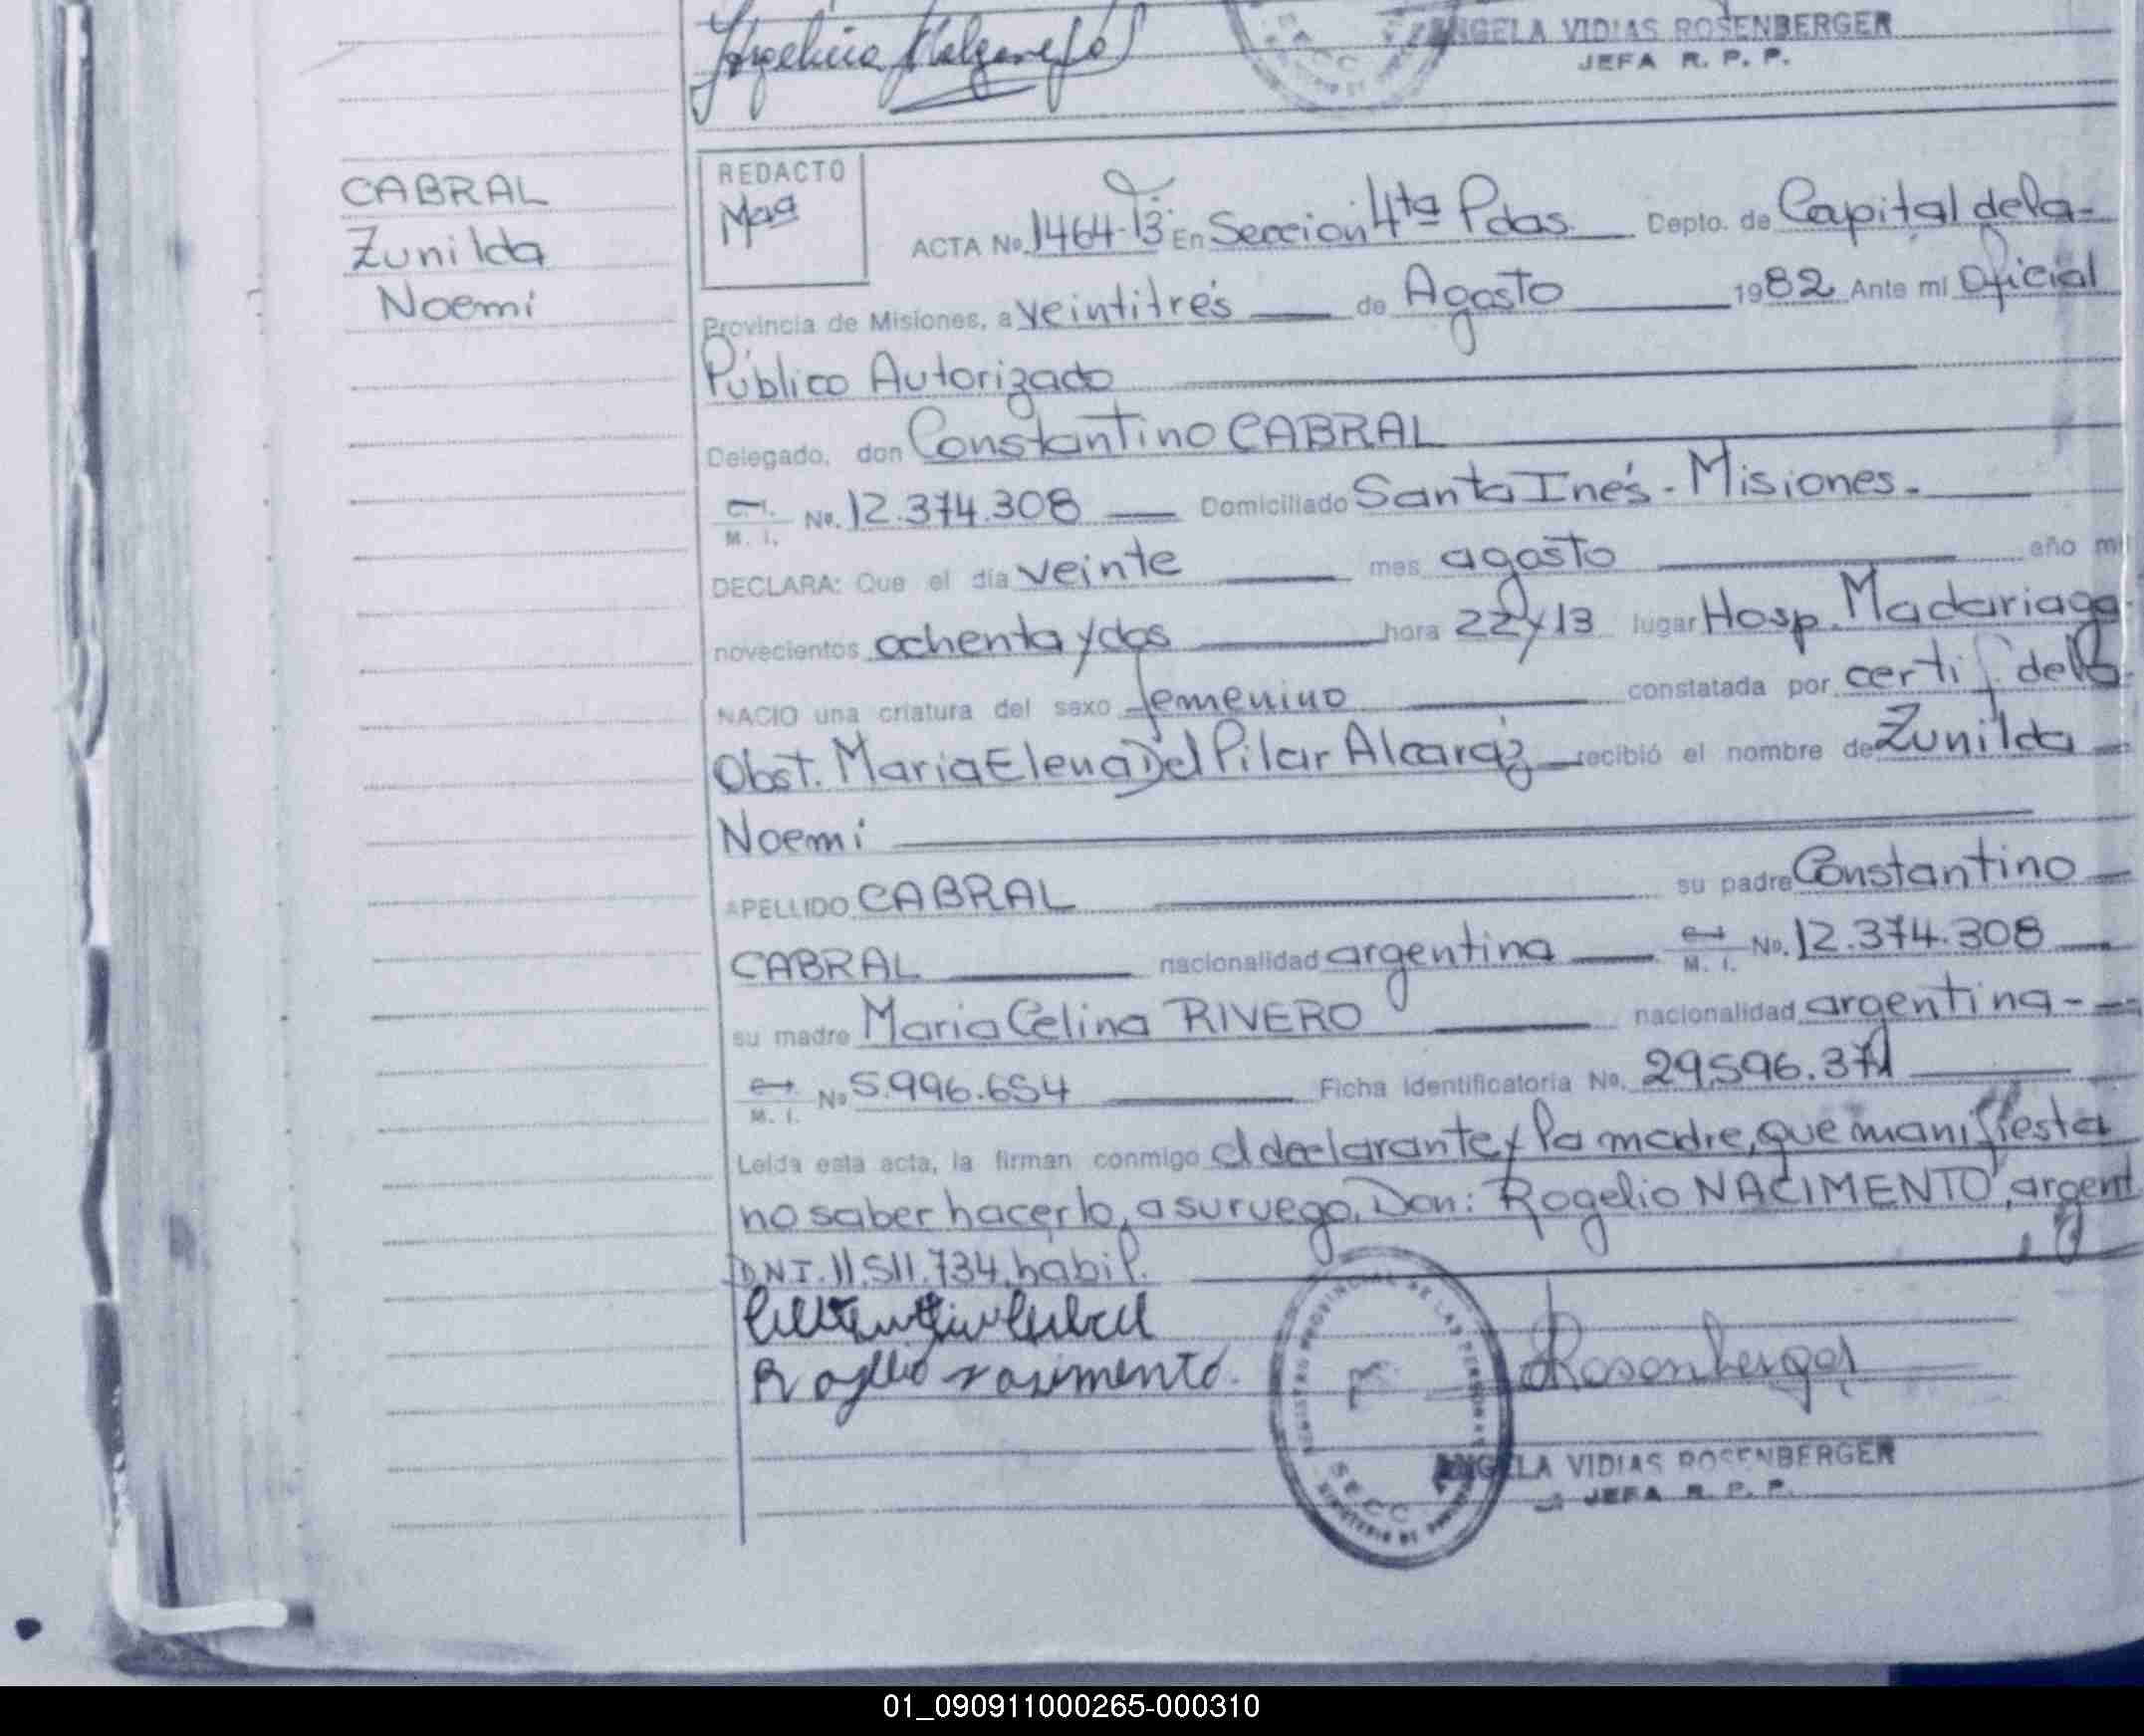 Angelica Melgarejo
ANGELA VIDIAS ROSENBERGER
JEFA R. P. P.
CABRAL
Zunilda
Noemí
REDACTO
ACTA No. 1464-T3 En Sección 4ta Pdas. Depto. de Capital de la-
Provincia de Misiones, a veintitrés de Agosto 1982 Ante mi Oficial
Público Autorizado
Delegado, don Constantino CABRAL
M. I. No. 12.374.308 Domiciliado Santa Inés - Misiones.
DECLARA: Que el día veinte mes agosto año mil
novecientos ochenta y dos hora 22 y 13 lugar Hosp. Madariaga
NACIO una criatura del sexo femenino constatada por certif de la
Obst. Maria Elena Del Pilar Alcaráz recibió el nombre de Zunilda
Noemí
APELLIDO CABRAL su padre Constantino
CABRAL nacionalidad argentina M. I. No. 12.374.308
su madre Maria Celina RIVERO nacionalidad argentina-
M. I. No 5.996.654 Ficha Identificatoria No. 29.596.371
Leída esta acta, la firman conmigo el declarante y la madre, que manifiesta
no saber hacerlo, a su ruego, Don: Rogelio NACIMENTO, argent
DNI. 11.511.734, habil.
Constantino Cabral
Rogelio nasimento.
Rosenberger
REGISTRO PROVINCIAL DE LAS PERSONAS
SECC
MINISTERIO DE
ANGELA VIDIAS ROSENBERGER
JEFA R. P. P.
01_090911000265-000310